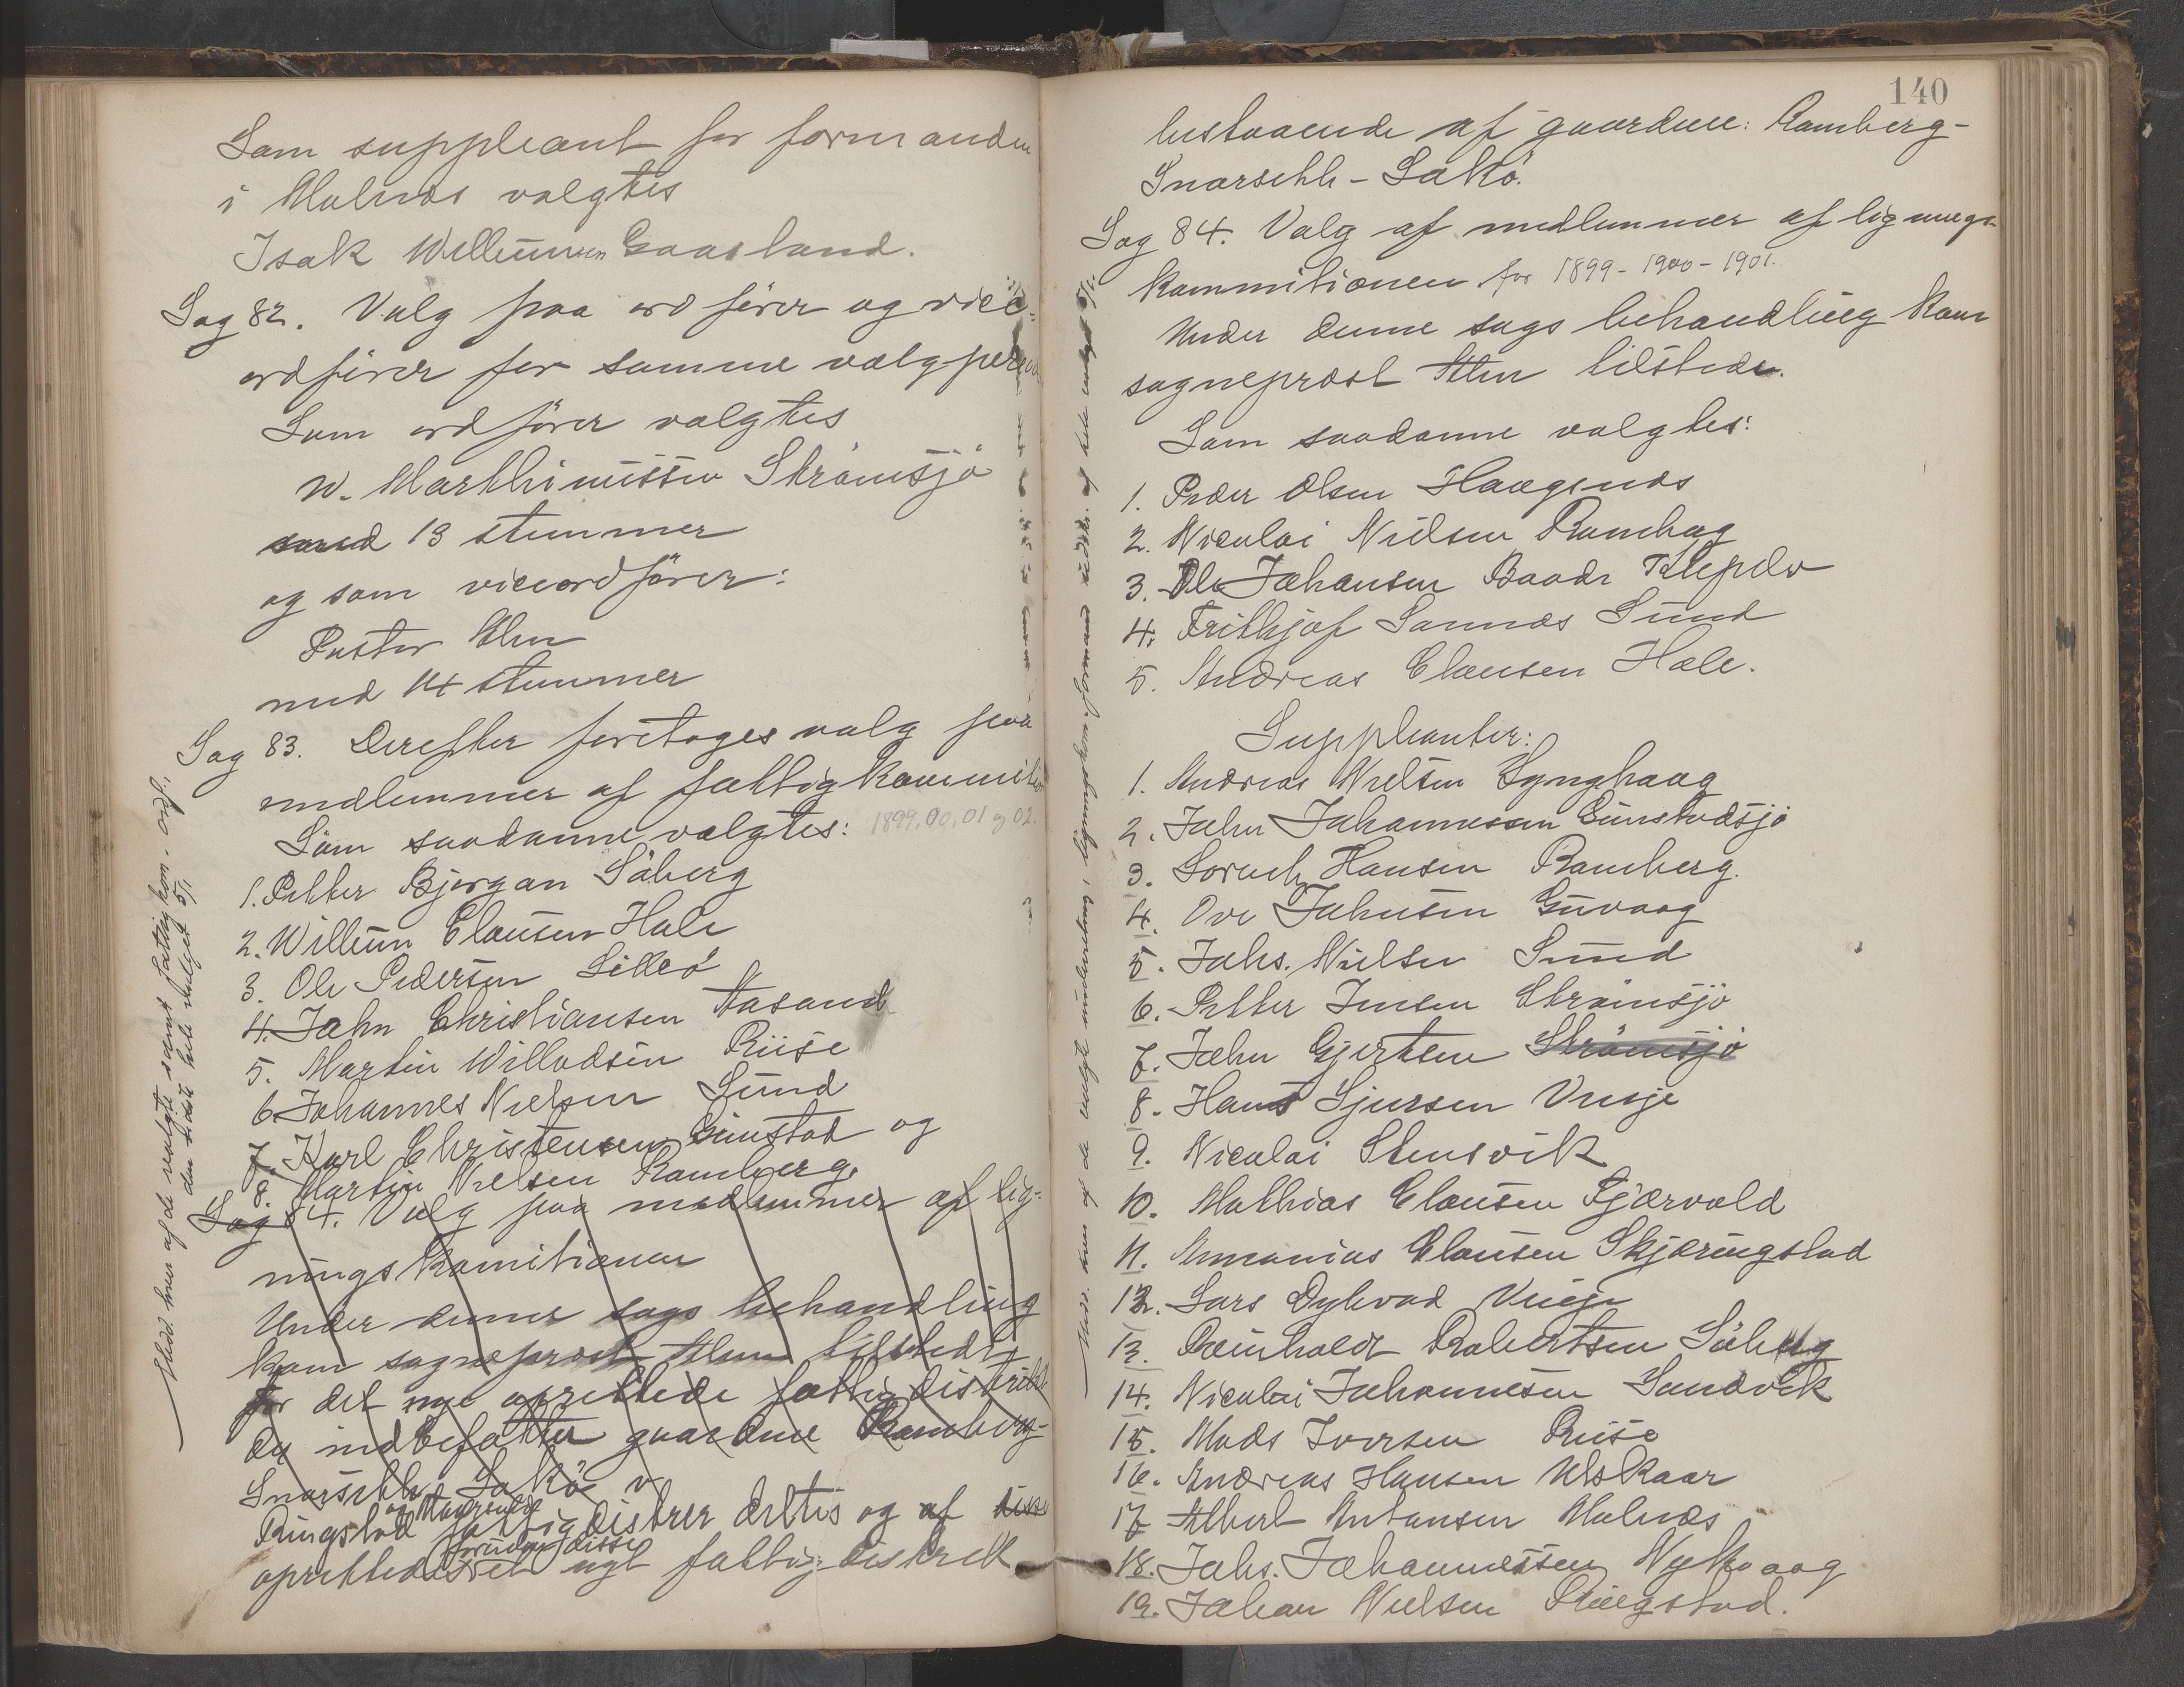 Som suppleant for formanden
i Malnæs valgtes
Isak Willumsen Gaasland.
Sag 82. Valg paa ordfører og vice-
ordfører for samme valgperiode
Som ordfører valgtes
W. Marthinussen Strømsjø
med 13 stemmer
og som viceordfører:
Pastor Alm
med 14 stemmer
Sag 83. Derefter foretoges valg paa
medlemmer af fattigkommition
Som saadanne valgtes: 1899, 00, 01 og 02.
1. Petter Bjørgan Søberg
2. Willum Clausen Hale
3. Ole Pedersen Lilleø
4. John Christiansen Aasand
5. Martin Willadsen Riise
6. Johannes Nielsen Sund
7. Karl Christensen Guustad og
8. Martin Nielsen Ramberg
Sag 84. Valg paa medlemmer af lig-
ningskomitionen
Under denne sags behandling
kom sogneprest Alm tilstede
for det nye oprettede fattigdistrikt
der indbefatter gaardene Ramberg-
Snarseth Sakø
Ringstad og fattigdistrer deltes og af disse
foruden disse
oprettedes et nyt fattigdistrikt
af de valgte samt fattigkom. ordf.
140
bestaaende af gaardene: Ramberg-
Snarseth - Sakø.
Sag 84. Valg af medlemmer af lignings-
kommitionen for 1899-1900-1901.
Under denne sags behandling kom
sogneprest Alm tilstede.
Som saadanne valgtes:
1. Peder Olsen Haugsnæs
2. Nicolai Nielsen Ramberg
3. Ole Johansen Baade Klepelv
4. Frithjof Sannæs Sund
5. Andreas Clausen Hale.
Suppleanter:
1. Andreas Nielsen Lynghaug
2. John Johannessen Guustadsjø
3. Lorentz Hansen Ramberg.
4. Ove Johnsen Guvaag
5. Johs. Nielsen Sund
6. Petter Jensen Strømsjø
7. John Gjertsen Strømsjø
8. Hans Sjursen Vinje
9. Nicolai Steensvik
10. Mathias Clausen Fjærvold
11. Ananias Clausen Skjæringstad
12. Lars Dybvad Vinje
13. Reinholdt Robertsen Søberg
14. Nicolai Johannesen Sandvik
15. Mads Iversen Riise
16. Andreas Hansen Utskaar
17 Albert Antonsen Malnæs
18. Johs. Johannessen Nykvaag
19. Johan Nielsen Ringstad.